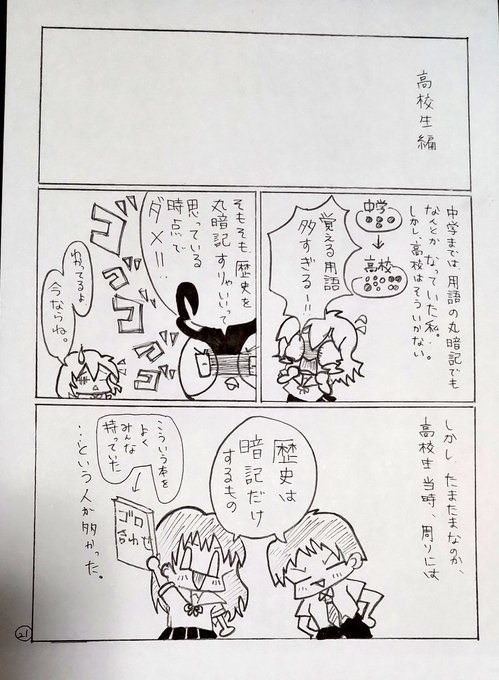 高校生編
中学までは用語の丸暗記でも
なんとかなっていた私…。
しかし高校はそういかない
中学
高校
覚える用語
多すぎるー!!
そもそも歴史を
丸暗記すりゃいいって
思っている
時点で
ダメ!!
ゴゴゴゴ
わかってるよ
今ならね。
しかし、たまたまなのか、
高校生当時、周りには
歴史は
暗記だけ
するもの
こういう本を
よく
みんな
持っていた
ゴロ
合わせ
…という人が多かった。
21